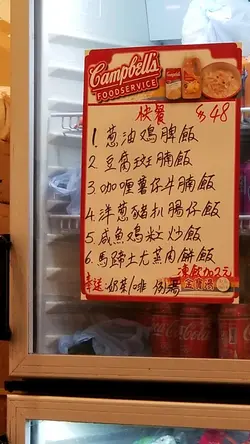 Campbell's
FOODSERVICE
快餐 $48
1. 葱油鸡脾飯
2. 豆腐斑腩飯
3. 咖喱薯仔牛腩飯
4. 洋葱豬扒腸仔飯
5. 咸魚鸡粒炒飯
6. 馬蹄土尤蒸肉餅飯
凍飲加2元
奶茶/咖啡 例湯
金寶湯
Coca-Cola